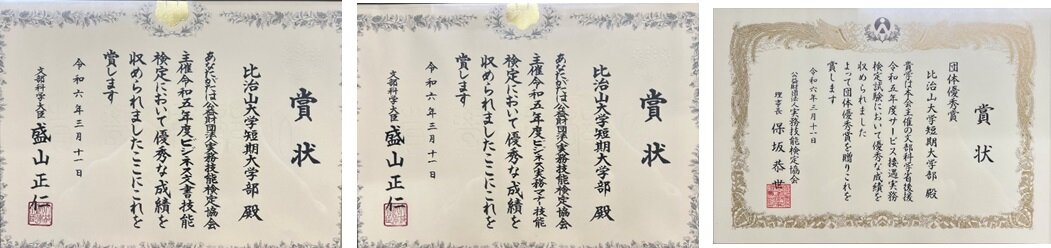 賞状
比治山大学短期大学部 殿
あなたがたは公益財団法人実務技能検定協会
主催令和五年度ビジネス文書技能
検定において優秀な成績を
収められましたここにこれを
賞します
令和六年三月十一日
文部科学大臣 盛山正仁
賞状
比治山大学短期大学部 殿
あなたがたは公益財団法人実務技能検定協会
主催令和五年度ビジネス実務マナー技能
検定において優秀な成績を
収められましたここにこれを
賞します
令和六年三月十一日
文部科学大臣 盛山正仁
賞状
団体優秀賞
比治山大学短期大学部 殿
貴学は本会主催の文部科学省後援
令和五年度サービス接遇実務
検定試験において優秀な成績を
収められました
よって団体優秀賞を贈りこれを
賞します
令和六年三月十一日
公益財団法人実務技能検定協会
理事長 保坂恭世